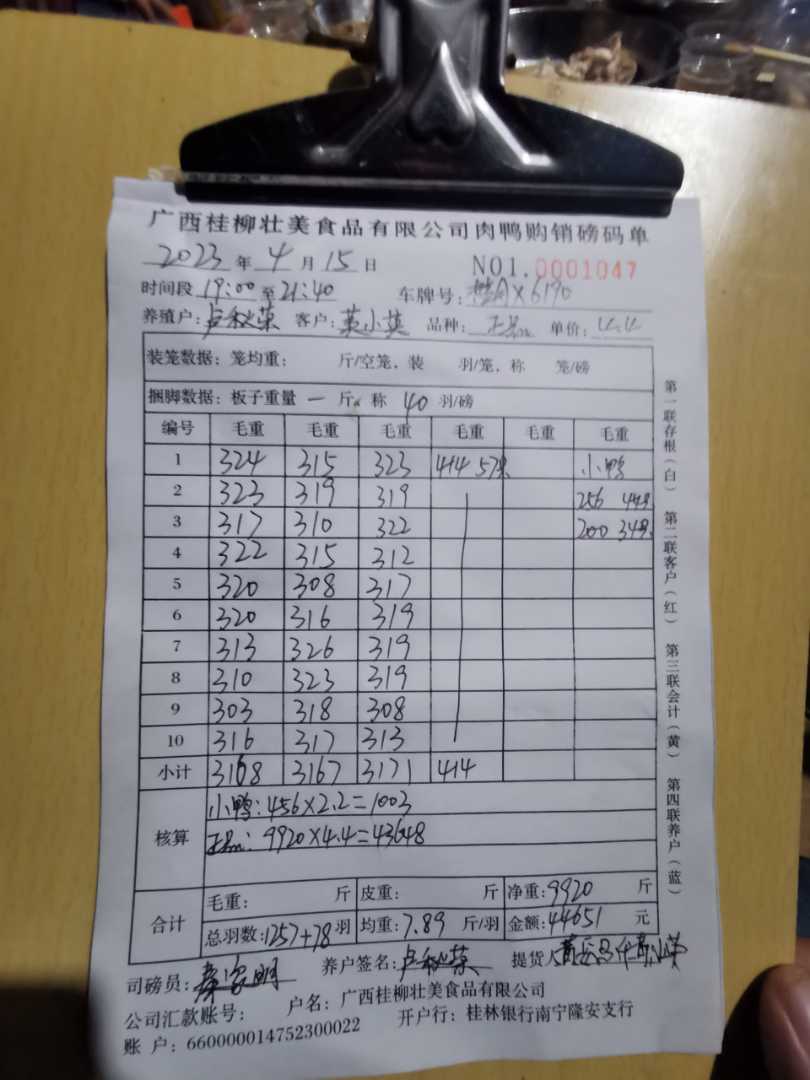 广西桂柳壮美食品有限公司肉鸭购销磅码单
2023 年 4 月 15 日 NO1.0001047
时间段 19:00 至 21:40 车牌号: X6190
养殖户: 卢秋荣 客户: 英 品种: 正品 单价: 4.4
装笼数据: 笼均重: 斤/空笼, 装 羽/笼, 称 笼/磅
捆脚数据: 板子重量 一 斤, 称 40 羽/磅
编号 毛重 毛重 毛重 毛重 毛重 毛重
1 324 315 323 414 57只 小鸭
2 323 319 319 256 44只
3 317 310 322 200 34只
4 322 315 312
5 320 308 317
6 320 316 319
7 313 326 319
8 310 323 319
9 303 318 308
10 316 317 313
小计 3168 3167 3171 414
核算 小鸭: 456×2.2=1003
正品: 9920×4.4=43648
合计 毛重: 斤 皮重: 斤 净重: 9920 斤
总羽数: 1257+78 羽 均重: 7.89 斤/羽 金额: 44651 元
司磅员: 明 养户签名: 卢秋荣 提货人
公司汇款账号: 户名: 广西桂柳壮美食品有限公司
账 户: 660000014752300022 开户行: 桂林银行南宁隆安支行
第一联存根(白) 第二联客户(红) 第三联会计(黄) 第四联养户(蓝)